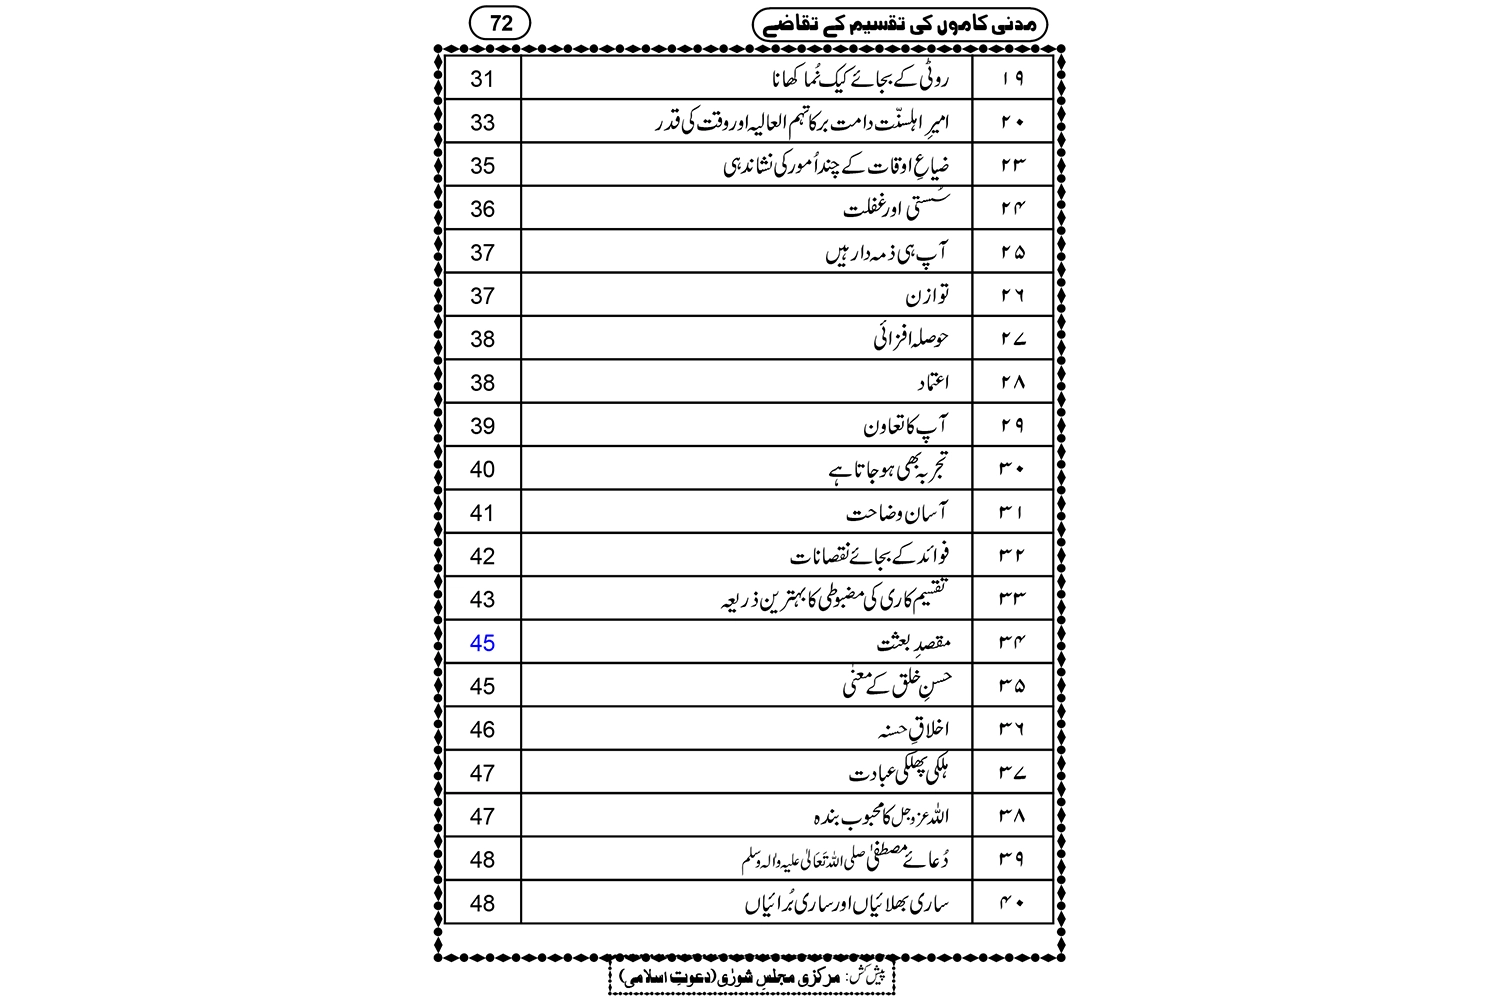 مدنی کاموں کی تقسیم کے تقاضے 72
۱۹ روٹی کے بجائے کیک نُما کھانا 31
۲۰ امیرِ اہلسنّت دامت برکاتہم العالیہ اور وقت کی قدر 33
۲۳ ضیاعِ اوقات کے چند اُمور کی نشاندہی 35
۲۴ سُستی اور غفلت 36
۲۵ آپ ہی ذمہ دار ہیں 37
۲۶ توازن 37
۲۷ حوصلہ افزائی 38
۲۸ اعتماد 38
۲۹ آپ کا تعاون 39
۳۰ تجربہ بھی ہو جاتا ہے 40
۳۱ آسان وضاحت 41
۳۲ فوائد کے بجائے نقصانات 42
۳۳ تقسیم کاری کی مضبوطی کا بہترین ذریعہ 43
۳۴ مقصدِ بعثت 45
۳۵ حسنِ خلق کے معنٰی 45
۳۶ اخلاقِ حسنہ 46
۳۷ ہلکی پھلکی عبادت 47
۳۸ اللہ عزوجل کا محبوب بندہ 47
۳۹ دُعائے مصطفیٰ صلی اللہ تَعَالٰی علیہ والہ وسلم 48
۴۰ ساری بھلائیاں اور ساری بُرائیاں 48
پیش کش: مرکزی مجلسِ شورٰی (دعوتِ اسلامی)